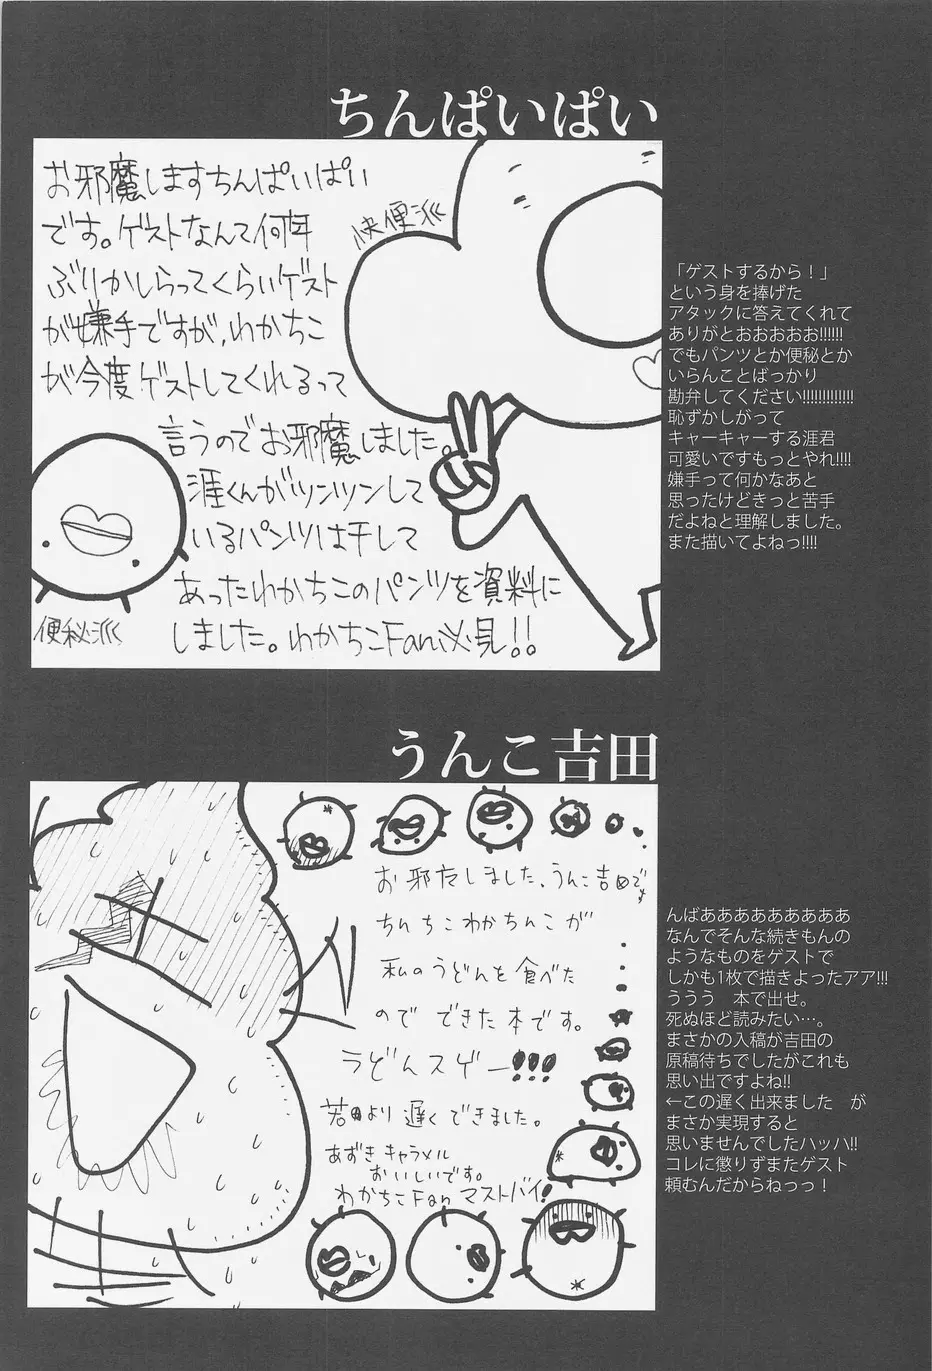 ちんぱいぱい
お邪魔しますちんぱいぱい
です。ゲストなんて何年
ぶりかしらってくらいゲスト
が嫌手ですが、わかちこ
が今度ゲストしてくれるって
言うのでお邪魔しました。
涯くんがツンツンして
いるパンツは干して
あったわかちこのパンツを資料に
しました。わかちこFan必見!!
快便派
便秘派
「ゲストするから！」
という身を捧げた
アタックに答えてくれて
ありがとおおおおお!!!!!!
でもパンツとか便秘とか
いらんことばっかり
勘弁してください!!!!!!!!!!!!!
恥ずかしがって
キャーキャーする涯君
可愛いですもっとやれ!!!!
嫌手って何かなあと
思ったけどきっと苦手
だよねと理解しました。
また描いてよねっ!!!!
うんこ吉田
お邪左しました、うんこ吉田です
ちんちこわかちんこが
私のうどんを食べた
ので できた本です。
うどんスゲー!!!
若田より遅くできました。
あずきキャラメル
おいしいです。
わかちこFanマストバイ!
んばああああああああああ
なんでそんな続きもんの
ようなものをゲストで
しかも1枚で描きよったアア!!!
ううう　本で出せ。
死ぬほど読みたい…。
まさかの入稿が吉田の
原稿待ちでしたがこれも
思い出ですよね!!
←この遅く出来ました　が
まさか実現すると
思いませんでしたハッハ!!
コレに懲りずまたゲスト
頼むんだからねっっ！